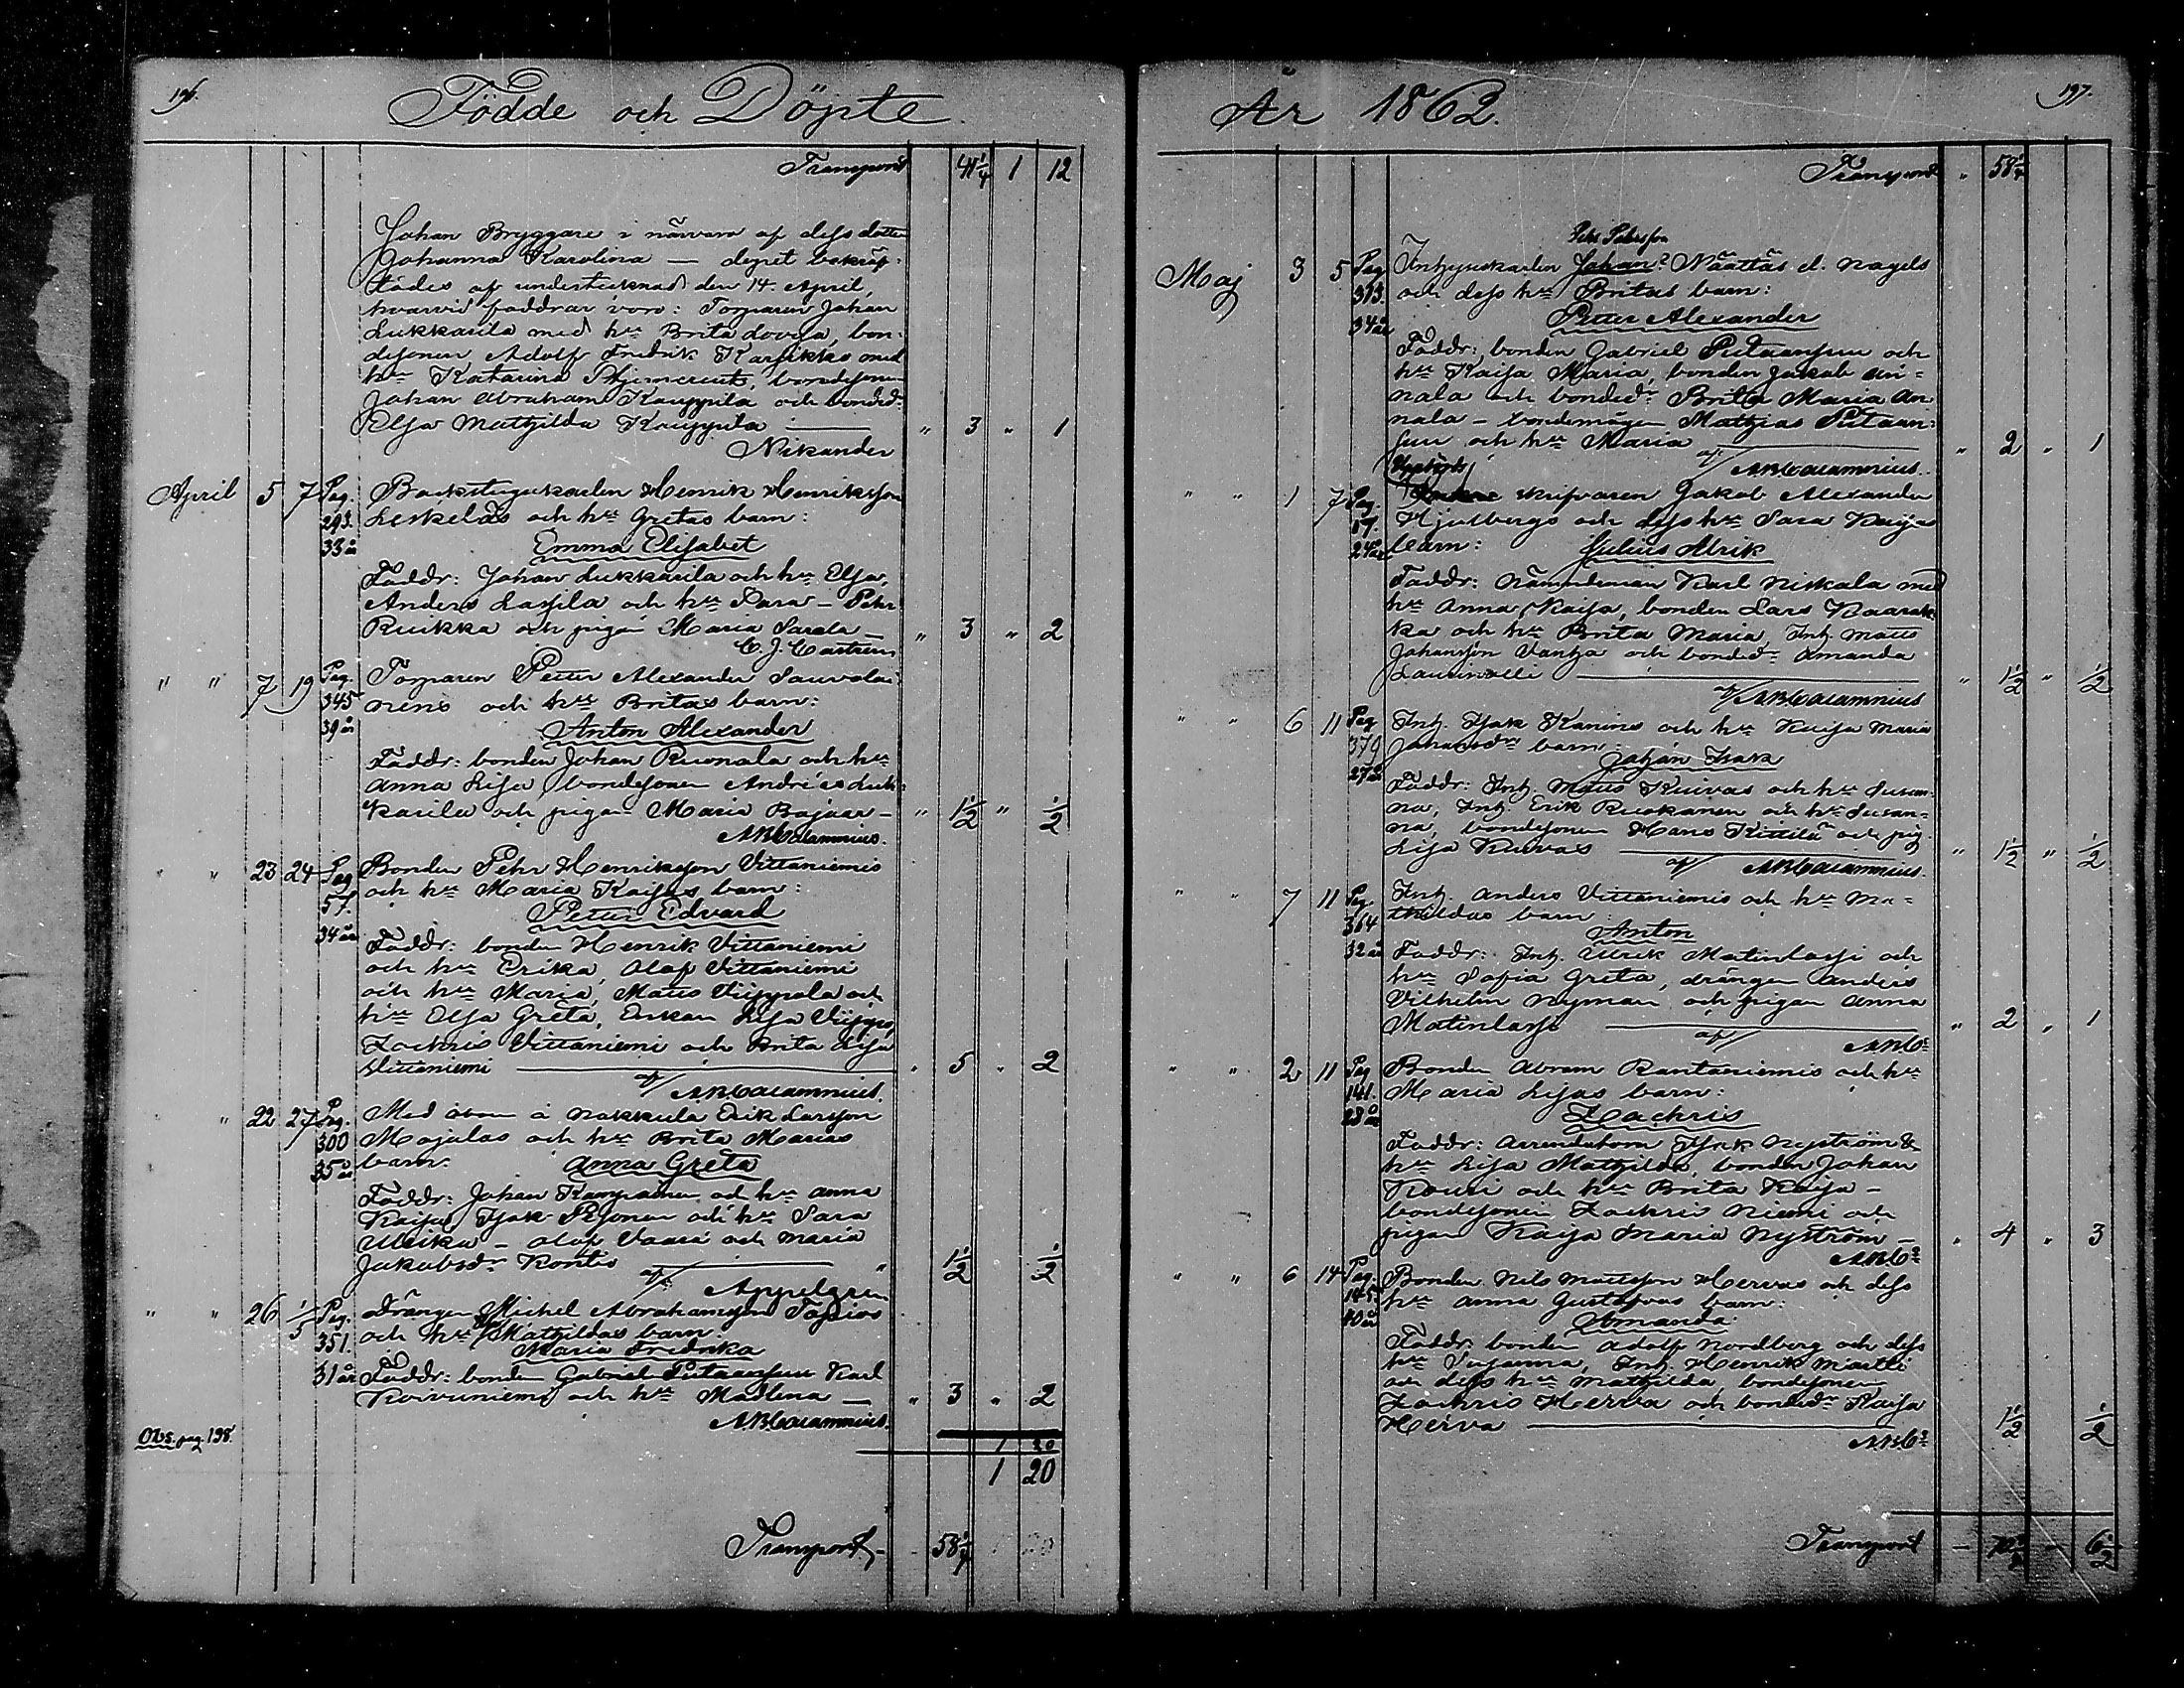 196.
Födde och Döpte
Transport 41 1/4 1 12
Johan Bryggare i närvaro af dess dotter
Johanna Karolina — dopet bekräf-
tades af undertecknad den 14 April,
hvarvid faddrar voro: Torparen Johan
Lukkarila med hu Brita Lovisa, bon-
desonen Adolf Fredrik Karsikko med
hu Katarina bondesonen
Johan Abraham Kauppila och bonded.
Elsa Mathilda Kauppila — " 3 " 1
Nikander
April 5 7 Pag. 293. 33 år Backstugukarlen Henrik Henriksson
Leskeläs och hu Gretas barn:
Emma Elisabet
Faddr: Johan Lukkarila och hu Elsa,
Anders Lassila och hu Sara — Pehr
Ruikka och pigan Maria Sarela — " 3 " 2
C. J. Castrén
" " 7 19 Pag. 345 39 år Torparen Petter Alexander Sauvolai-
nens och hu Britas barn:
Anton Alexander
Faddr: bonden Johan Ruonala och hu
Anna Lisa, bondesonen Andreas Luk-
karila och pigan Maria Bajaar — " 1 1/2 " 1/2
A B Calamnius.
" " 23 24 Pag 57. 34 år Bonden Pehr Henriksson Viitaniemis
och hu Maria Kaisas barn:
Petter Edvard
Faddr: bonden Henrik Viitaniemi
och hu Erika, Olof Viitaniemi
och hu Maria, Matts Viippola och
hu Elsa Greta, Enkan Lisa
Zachris Viitaniemi och Brita Lisa
Viitaniemi — " 5 " 2
af/ A B Calamnius.
" 22 27 Pag. 300 35 år Med åboen å Nakkula Erik Larsson
Majalas och hu Brita Marias
barn: Anna Greta
Faddr: Johan Kamparinen och hu Anna
Kaisa, Isak Pesonen och hu Sara
Ulrika — Olof Vaara och Maria
Jakobsdr Kontio — " 1 1/2 1/2
af/ Appelgren
" " 26 1/5 Pag. 351. 31 år Drängen Michel Abrahamsson Tapios
och hu Mathildas barn:
Maria Fredrika
Faddr: bonden Gabriel Putaansuu Karl
Koivuniemi och hu Madlena — " 3 " 2
A B Calamnius.
Obs. pag. 198.
1 20
1 20
Transport — 58 1/4
År 1862.
197.
Transport " 58 1/4
Petter Pettersson
Maj 3 5 Pag 313. 34 år Inhyseskarlen Johan? Näätäs el. Nagels
och dess hu Britas barn:
Petter Alexander
Faddr: bonden Gabriel Putaansuu och
hu Kaisa Maria, bonden Jakob An-
nala och bonded. Brita Maria An
nala — bondemågen Mathias Putaan-
suu och hu Maria — " 2 " 1
af/ A B Calamnius.
" " 1 7 Pag. 17. 24 år skrifvaren Jakob Alexander
Hjulbergs och dess hu Sara Kaisas
barn: Julius Alrik
Faddr: Nämndeman Karl Niskala med
hu Anna Kaisa, bonden Lars Kaarak-
ka och hu Brita Maria, Inh. Matts
Johansson Vantja och bonded. Amanda
Laurivalli — " 1 1/2 " 1/2
af/ A B Calamnius
" " 6 11 Pag 379 27 år Inh. Isak Kanins och hu Kaisa Maria
Johansdr barn:
Johan Isak
Faddr: Inh. Matts Kuivas och hu Susan-
na, Inh. Erik Ruokanen och hu Susan-
na, bondesonen Hans Kittilä och pig.
Lisa Kuivas — " 1 1/2 " 1/2
af/ A B Calamnius.
" " 7 11 Pag. 364 32 år Inh. Anders Viitaniemis och hu Ma-
thildas barn:
Anton
Faddr: Inh. Ulrik Matinlassi och
hu Sofia Greta, drängen Anders
Vilhelm Nyman och pigan Anna
Matinlassi — " 2 " 1
af/ A B Cs
" " 2 11 Pag 141. 28 år Bonden Abram Rantaniemis och hu
Maria Lisas barn:
Zachris
Faddr: Arrendatorn Isak Nyström &
hu Lisa Mathilda, bonden Johan
Kouri och hu Brita Kaisa —
bondesonen Zachris Niemi och
pigan Kaisa Maria Nyström — " 4 " 3
A B Cs
" " 6 14 Pag. 145. 40 år Bonden Nils Mattsson Hervas och dess
hu Anna Gustafvas barn:
Amanda
Faddr: bonden Adolf Nordberg och dess
hu Susanna, Inh. Henrik Martti
och dess hu Mathilda, bondesonen
Zachris Herva och bonded. Kaisa
Herva — 1 1/2 1/2
A B Cs
Transport — 70 3/4 — 6 1/2